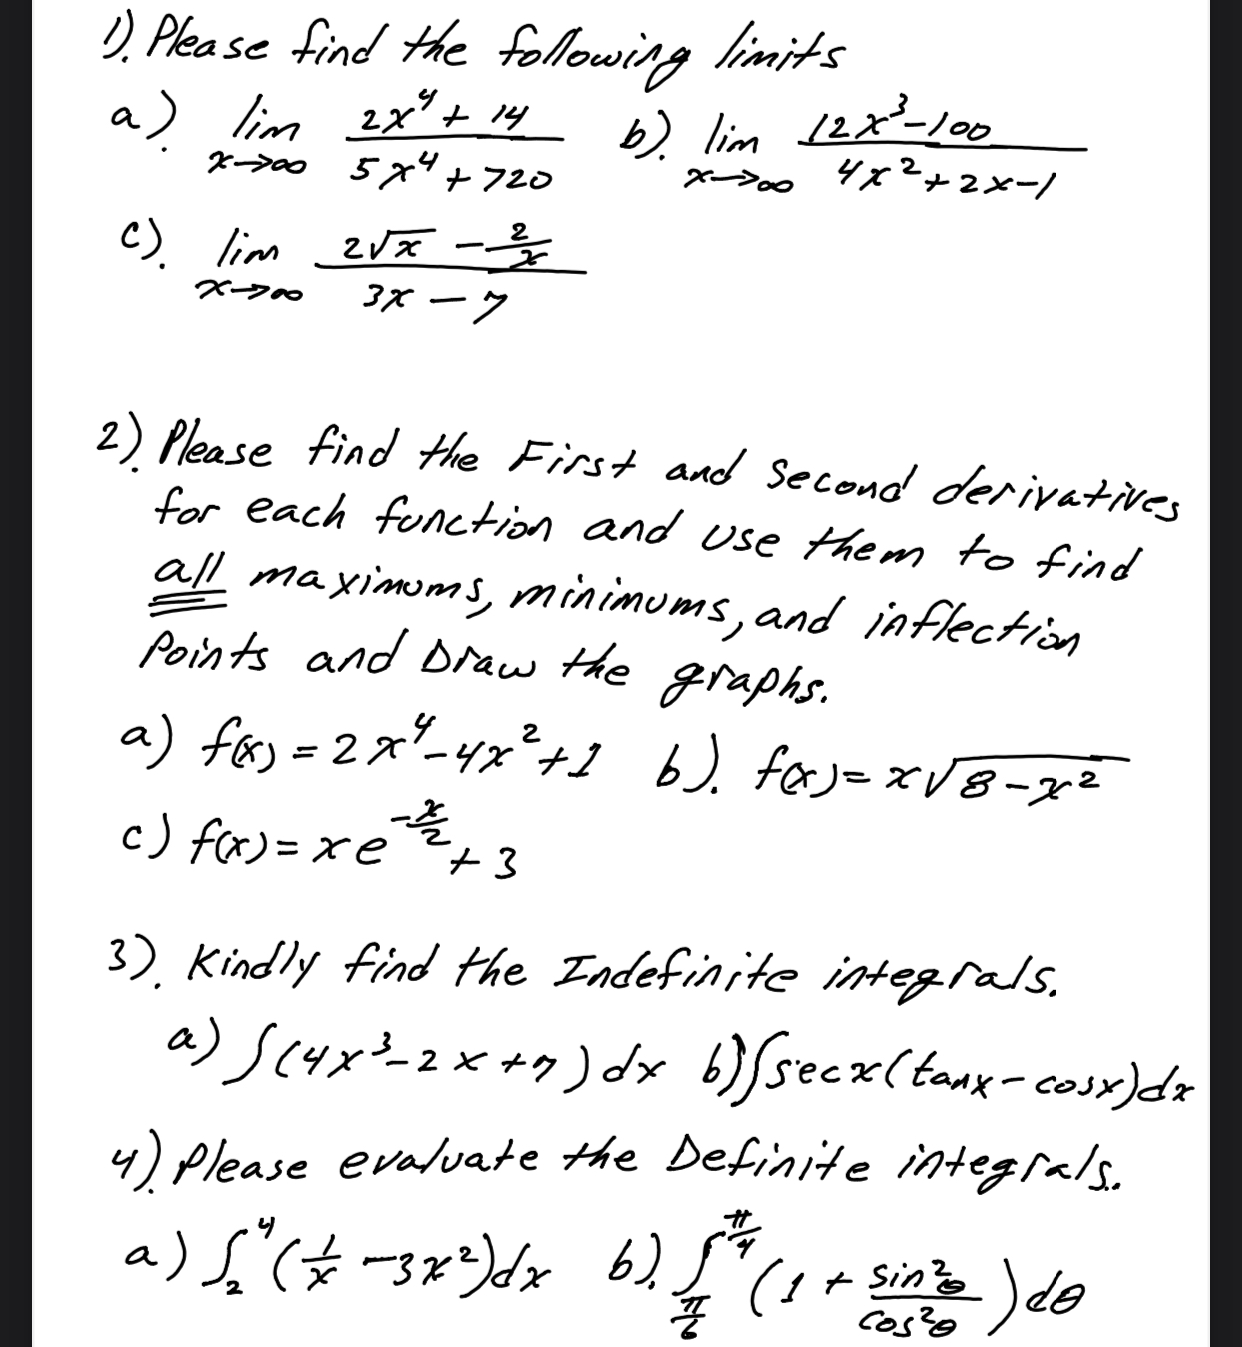 1). Please find the following limits
a). lim x→∞ (2x⁴ + 14)/(5x⁴ + 720) b). lim x→∞ (12x³ - 100)/(4x² + 2x - 1)
c). lim x→∞ (2√x - 2/x)/(3x - 7)
2). Please find the First and Second derivatives
for each function and use them to find
all maximums, minimums, and inflection
Points and Draw the graphs.
a) f(x) = 2x⁴ - 4x² + 1 b). f(x) = x√(8 - x²)
c) f(x) = xe^(-x/2) + 3
3). Kindly find the Indefinite integrals.
a) ∫(4x³ - 2x + 7)dx b) ∫secx(tanx - cosx)dx
4). Please evaluate the Definite integrals.
a) ∫₂⁴ (1/x - 3x²)dx b). ∫_(π/6)^(π/4) (1 + sin²θ/cos²θ)dθ